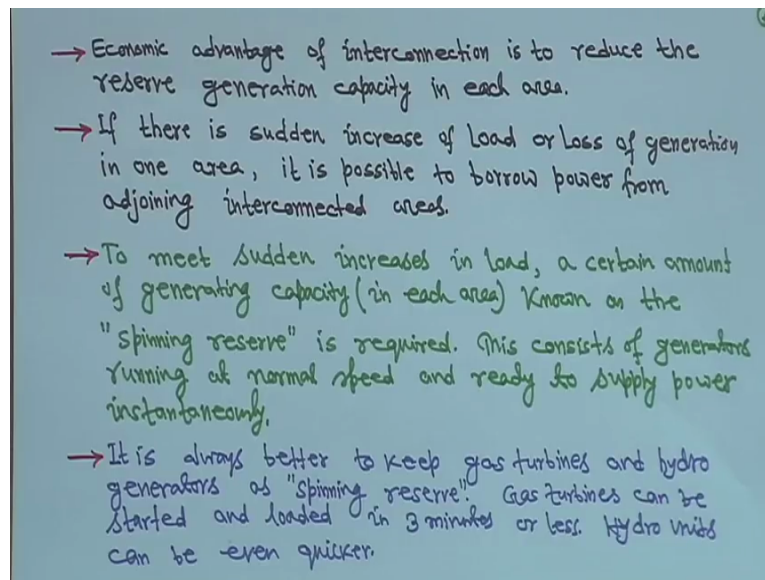 → Economic advantage of interconnection is to reduce the
reserve generation capacity in each area.
→ If there is sudden increase of Load or Loss of generation
in one area, it is possible to borrow power from
adjoining interconnected areas.
→ To meet sudden increases in load, a certain amount
of generating capacity (in each area) Known as the
"spinning reserve" is required. This consists of generators
running at normal speed and ready to supply power
instantaneously.
→ It is always better to keep gas turbines and hydro
generators as "spinning reserve". Gas turbines can be
started and loaded in 3 minutes or less. Hydro units
can be even quicker.